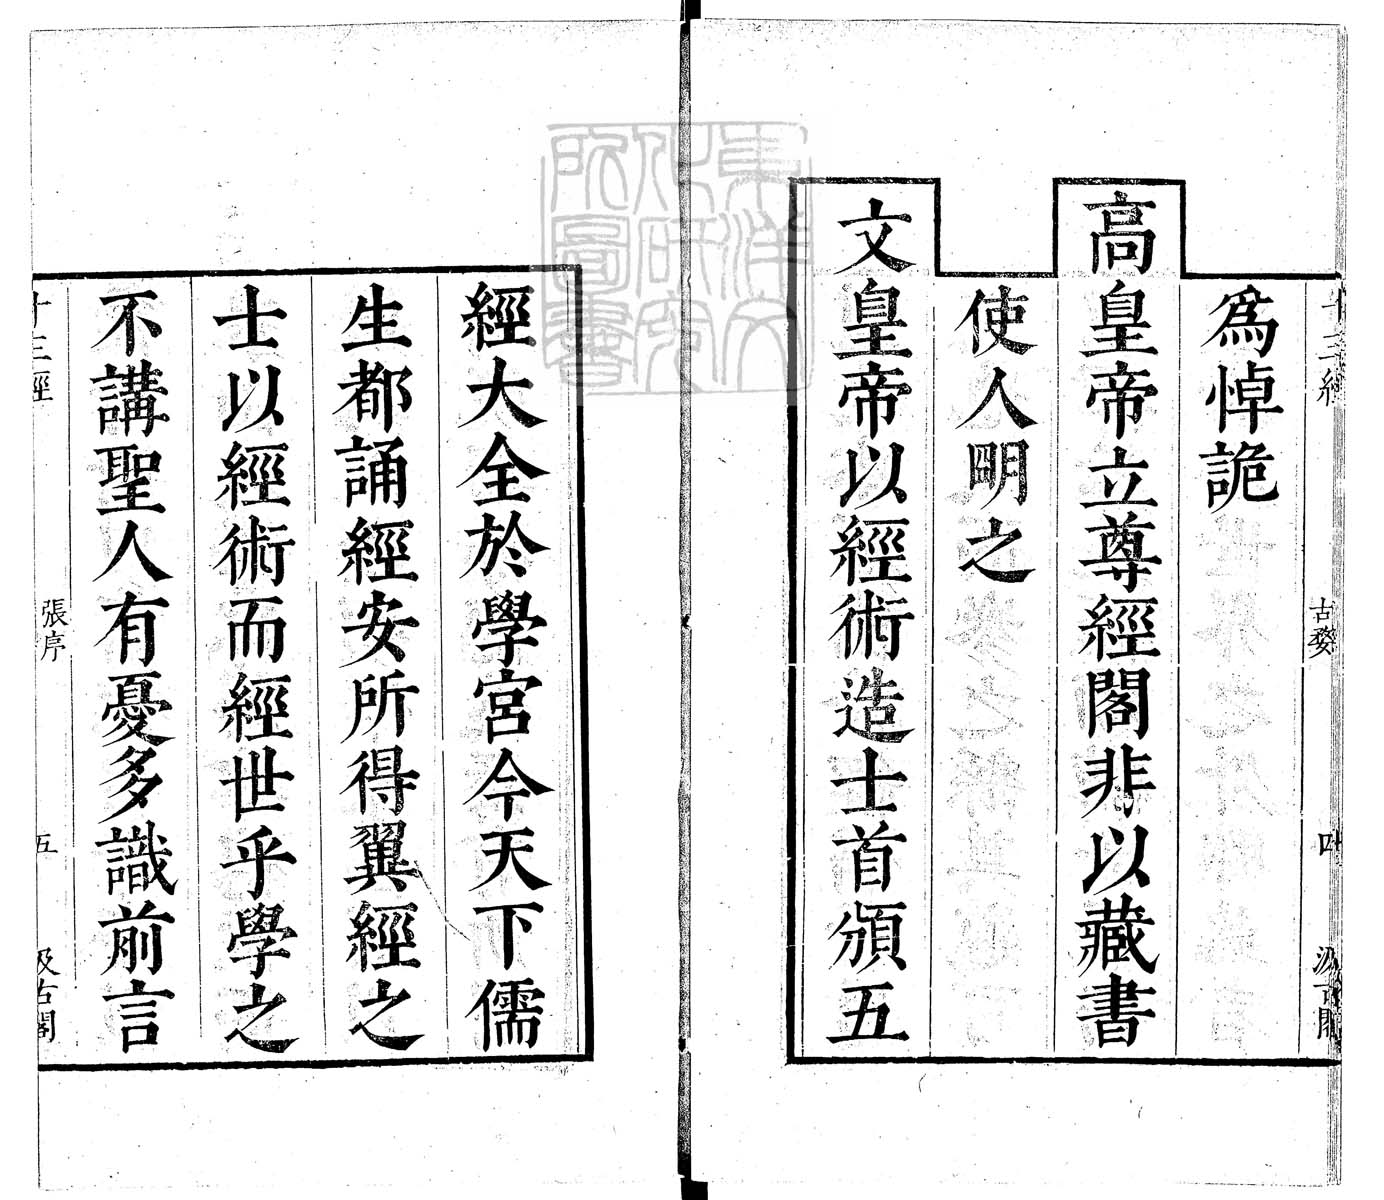 十三經
古婺
汲古閣
爲悼詭
高皇帝立尊經閣非以藏書
使人明之
文皇帝以經術造士首頒五
經大全於學宮今天下儒
生都誦經安所得翼經之
士以經術而經世乎學之
不講聖人有憂多識前言
十三經
張序
五
汲古閣
東洋文
化研究
所圖書